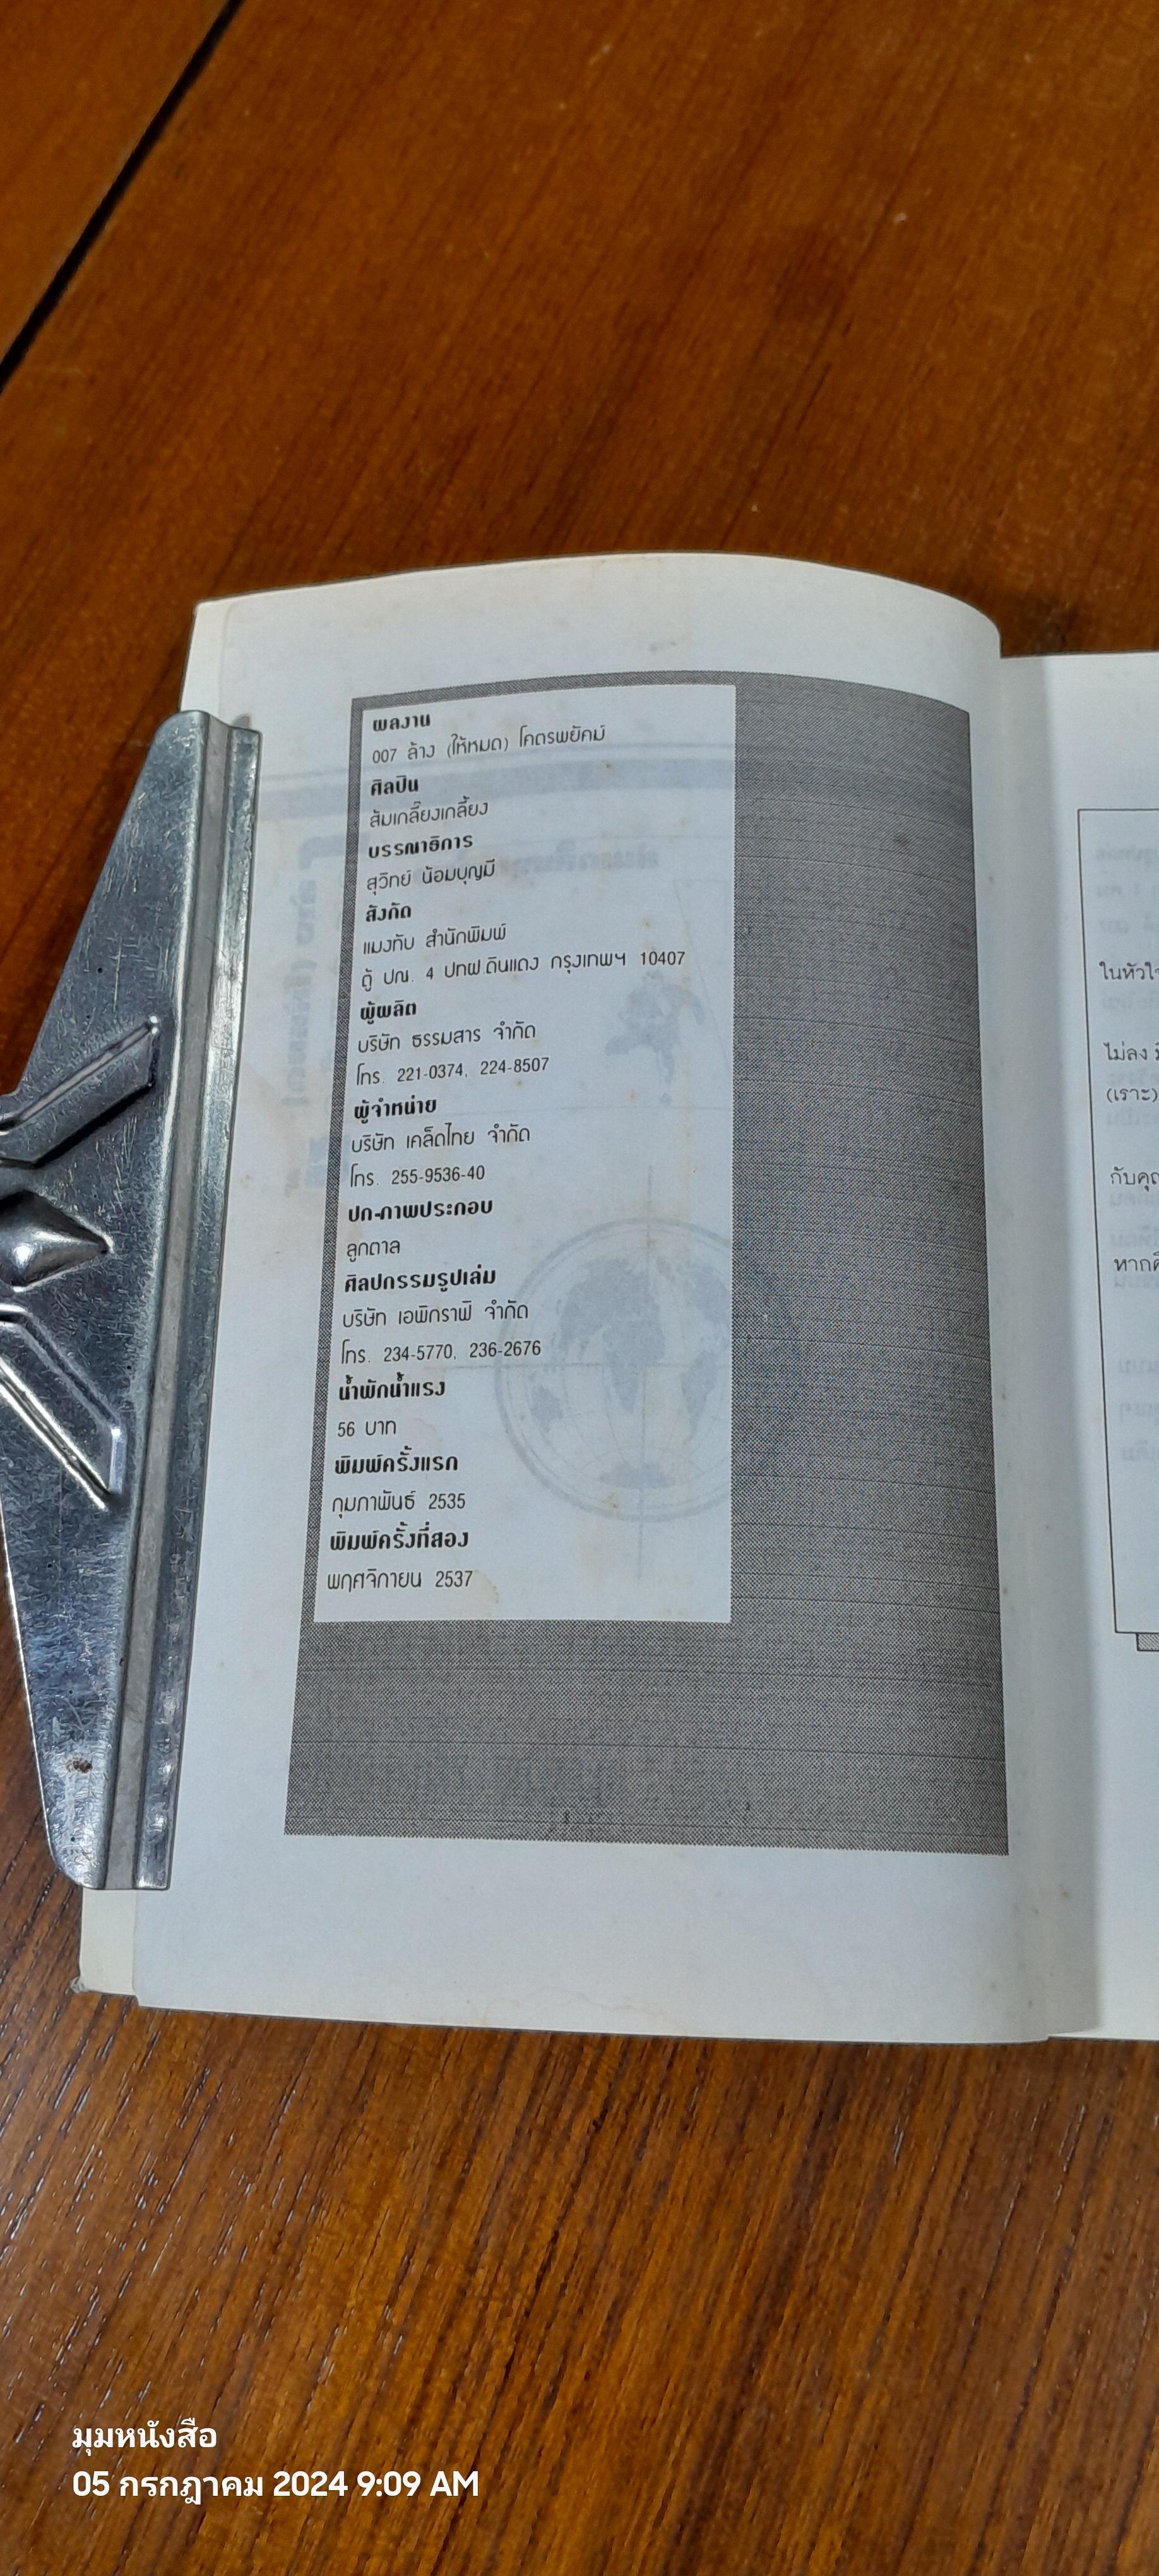 ผลงาน
007 ล้าง (ให้หมด) โคตรพยัคฆ์
ศิลปิน
ส้มเกลี๊ยงเกลี้ยง
บรรณาธิการ
สุวิทย์ น้อมบุญมี
สังกัด
แมงทับ สำนักพิมพ์
ตู้ ปณ. 4 ปทฝ.ดินแดง กรุงเทพฯ 10407
ผู้ผลิต
บริษัท ธรรมสาร จำกัด
โทร. 221-0374, 224-8507
ผู้จำหน่าย
บริษัท เคล็ดไทย จำกัด
โทร. 255-9536-40
ปก-ภาพประกอบ
ลูกตาล
ศิลปกรรมรูปเล่ม
บริษัท เอพิกราฟิ จำกัด
โทร. 234-5770, 236-2676
น้ำพักน้ำแรง
56 บาท
พิมพ์ครั้งแรก
กุมภาพันธ์ 2535
พิมพ์ครั้งที่สอง
พฤศจิกายน 2537
ในหัวใจ
ไม่ลง
(เราะ)
กับคุณ
มุมหนังสือ
05 กรกฎาคม 2024 9:09 AM